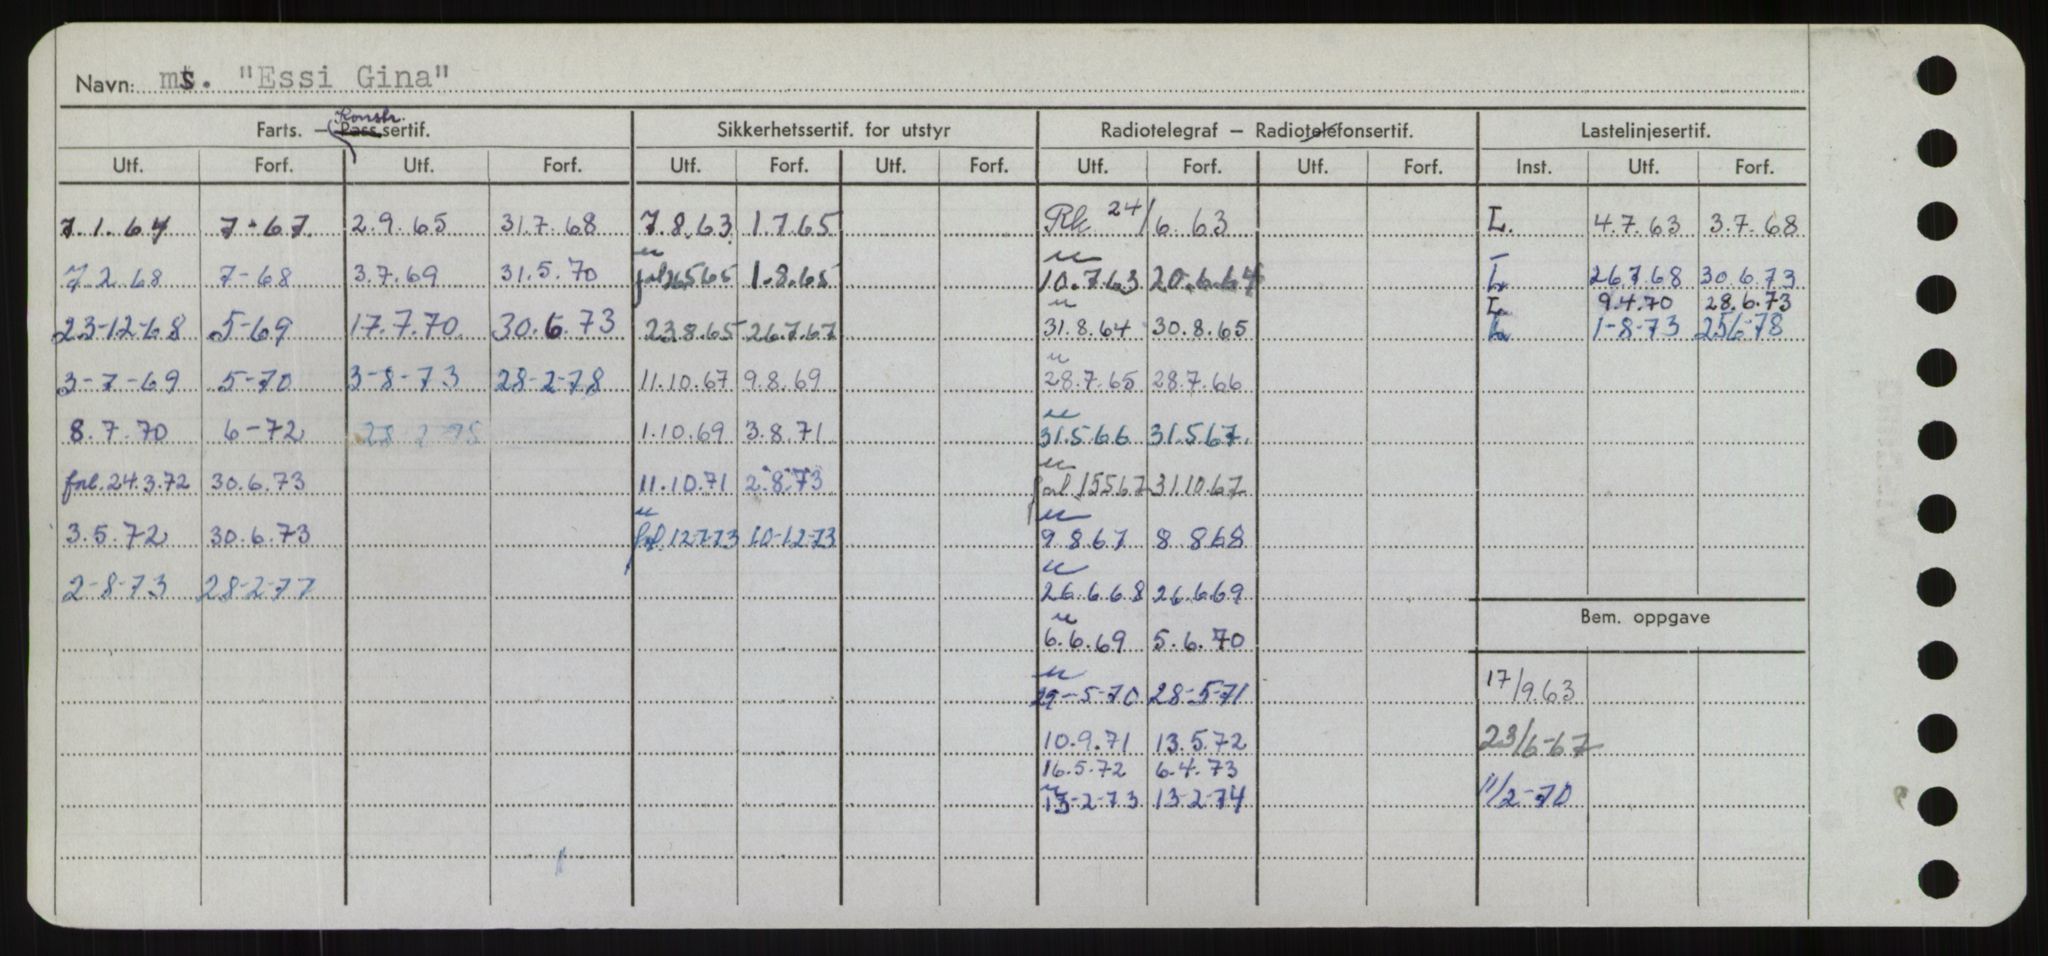 Navn: ms. "Essi Gina"
Farts. – Pass sertif. Konstr. Sikkerhetssertif. for utstyr Radiotelegraf – Radiotelefonsertif. Lastelinjesertif.
Utf. Forf. Utf. Forf. Utf. Forf. Utf. Forf. Utf. Forf. Utf. Forf. Inst. Utf. Forf.
7.1.64 7-67 2.9.65 31.7.68 7.8.63 1.7.65 Rk 24/6.63 L. 4.7.63 3.7.68
7.2.68 7-68 3.7.69 31.5.70 26565 1.8.65 10.7.63 20.6.64 L 26.7.68 30.6.73
L 9.4.70 28.6.73
23-12-68 5-69 17.7.70 30.6.73 23.8.65 26.7.67 31.8.64 30.8.65 L 1-8-73 25/6-78
3-7-69 5-70 3-8-73 28-2-78 11.10.67 9.8.69 28.7.65 28.7.66
8.7.70 6-72 1.10.69 3.8.71 31.5.66 31.5.67.
fnl. 24.3.72 30.6.73 11.10.71 2.8.73 15567 31.10.67
3.5.72 30.6.73 12-7-73 10-12-73 9.8.67 8.8.68
2-8-73 28-2-77 26.6.68 26.6.69
Bem. oppgave
6.6.69 5.6.70
29-5-70 28-5-71 17/9.63
10.9.71 13.5.72 23/6-67
16.5.72 6.4.73
13-2-73 13-2-74 11/2-70